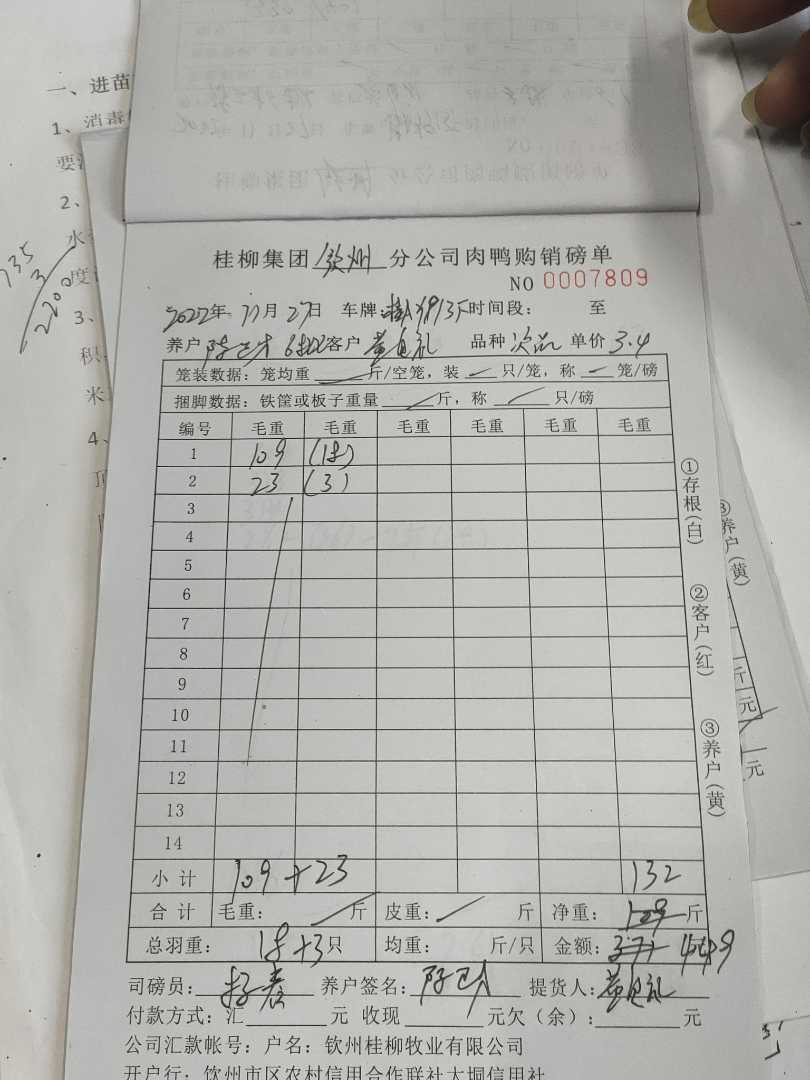 一、进苗
1、消毒
要
2、
水
度
3、
积
米
4、
735
3
2200
桂柳集团 钦州 分公司肉鸭购销磅单
NO 0007809
2022年 11月 27日 车牌: 时间段: 至
养户 陈 客户 黄 礼 品种 次品 单价 3.4
笼装数据: 笼均重 斤/空笼, 装 只/笼, 称 笼/磅
捆脚数据: 铁筐或板子重量 斤, 称 只/磅
编号 毛重 毛重 毛重 毛重 毛重 毛重
1 109
2 23 (3)
3
4
5
6
7
8
9
10
11
12
13
14
小计 109+23 132
合计 毛重: 斤 皮重: 斤 净重: 109 斤
总羽重: +3只 均重: 斤/只 金额: 371 449
司磅员: 养户签名: 陈 提货人: 黄 礼
付款方式: 汇 元 收现 元欠(余): 元
公司汇款帐号: 户名: 钦州桂柳牧业有限公司
开户行: 钦州市区农村信用合作联社大垌信用社
①存根(白)
②客户(红)
③养户(黄)
③养户(黄)
斤
元
元